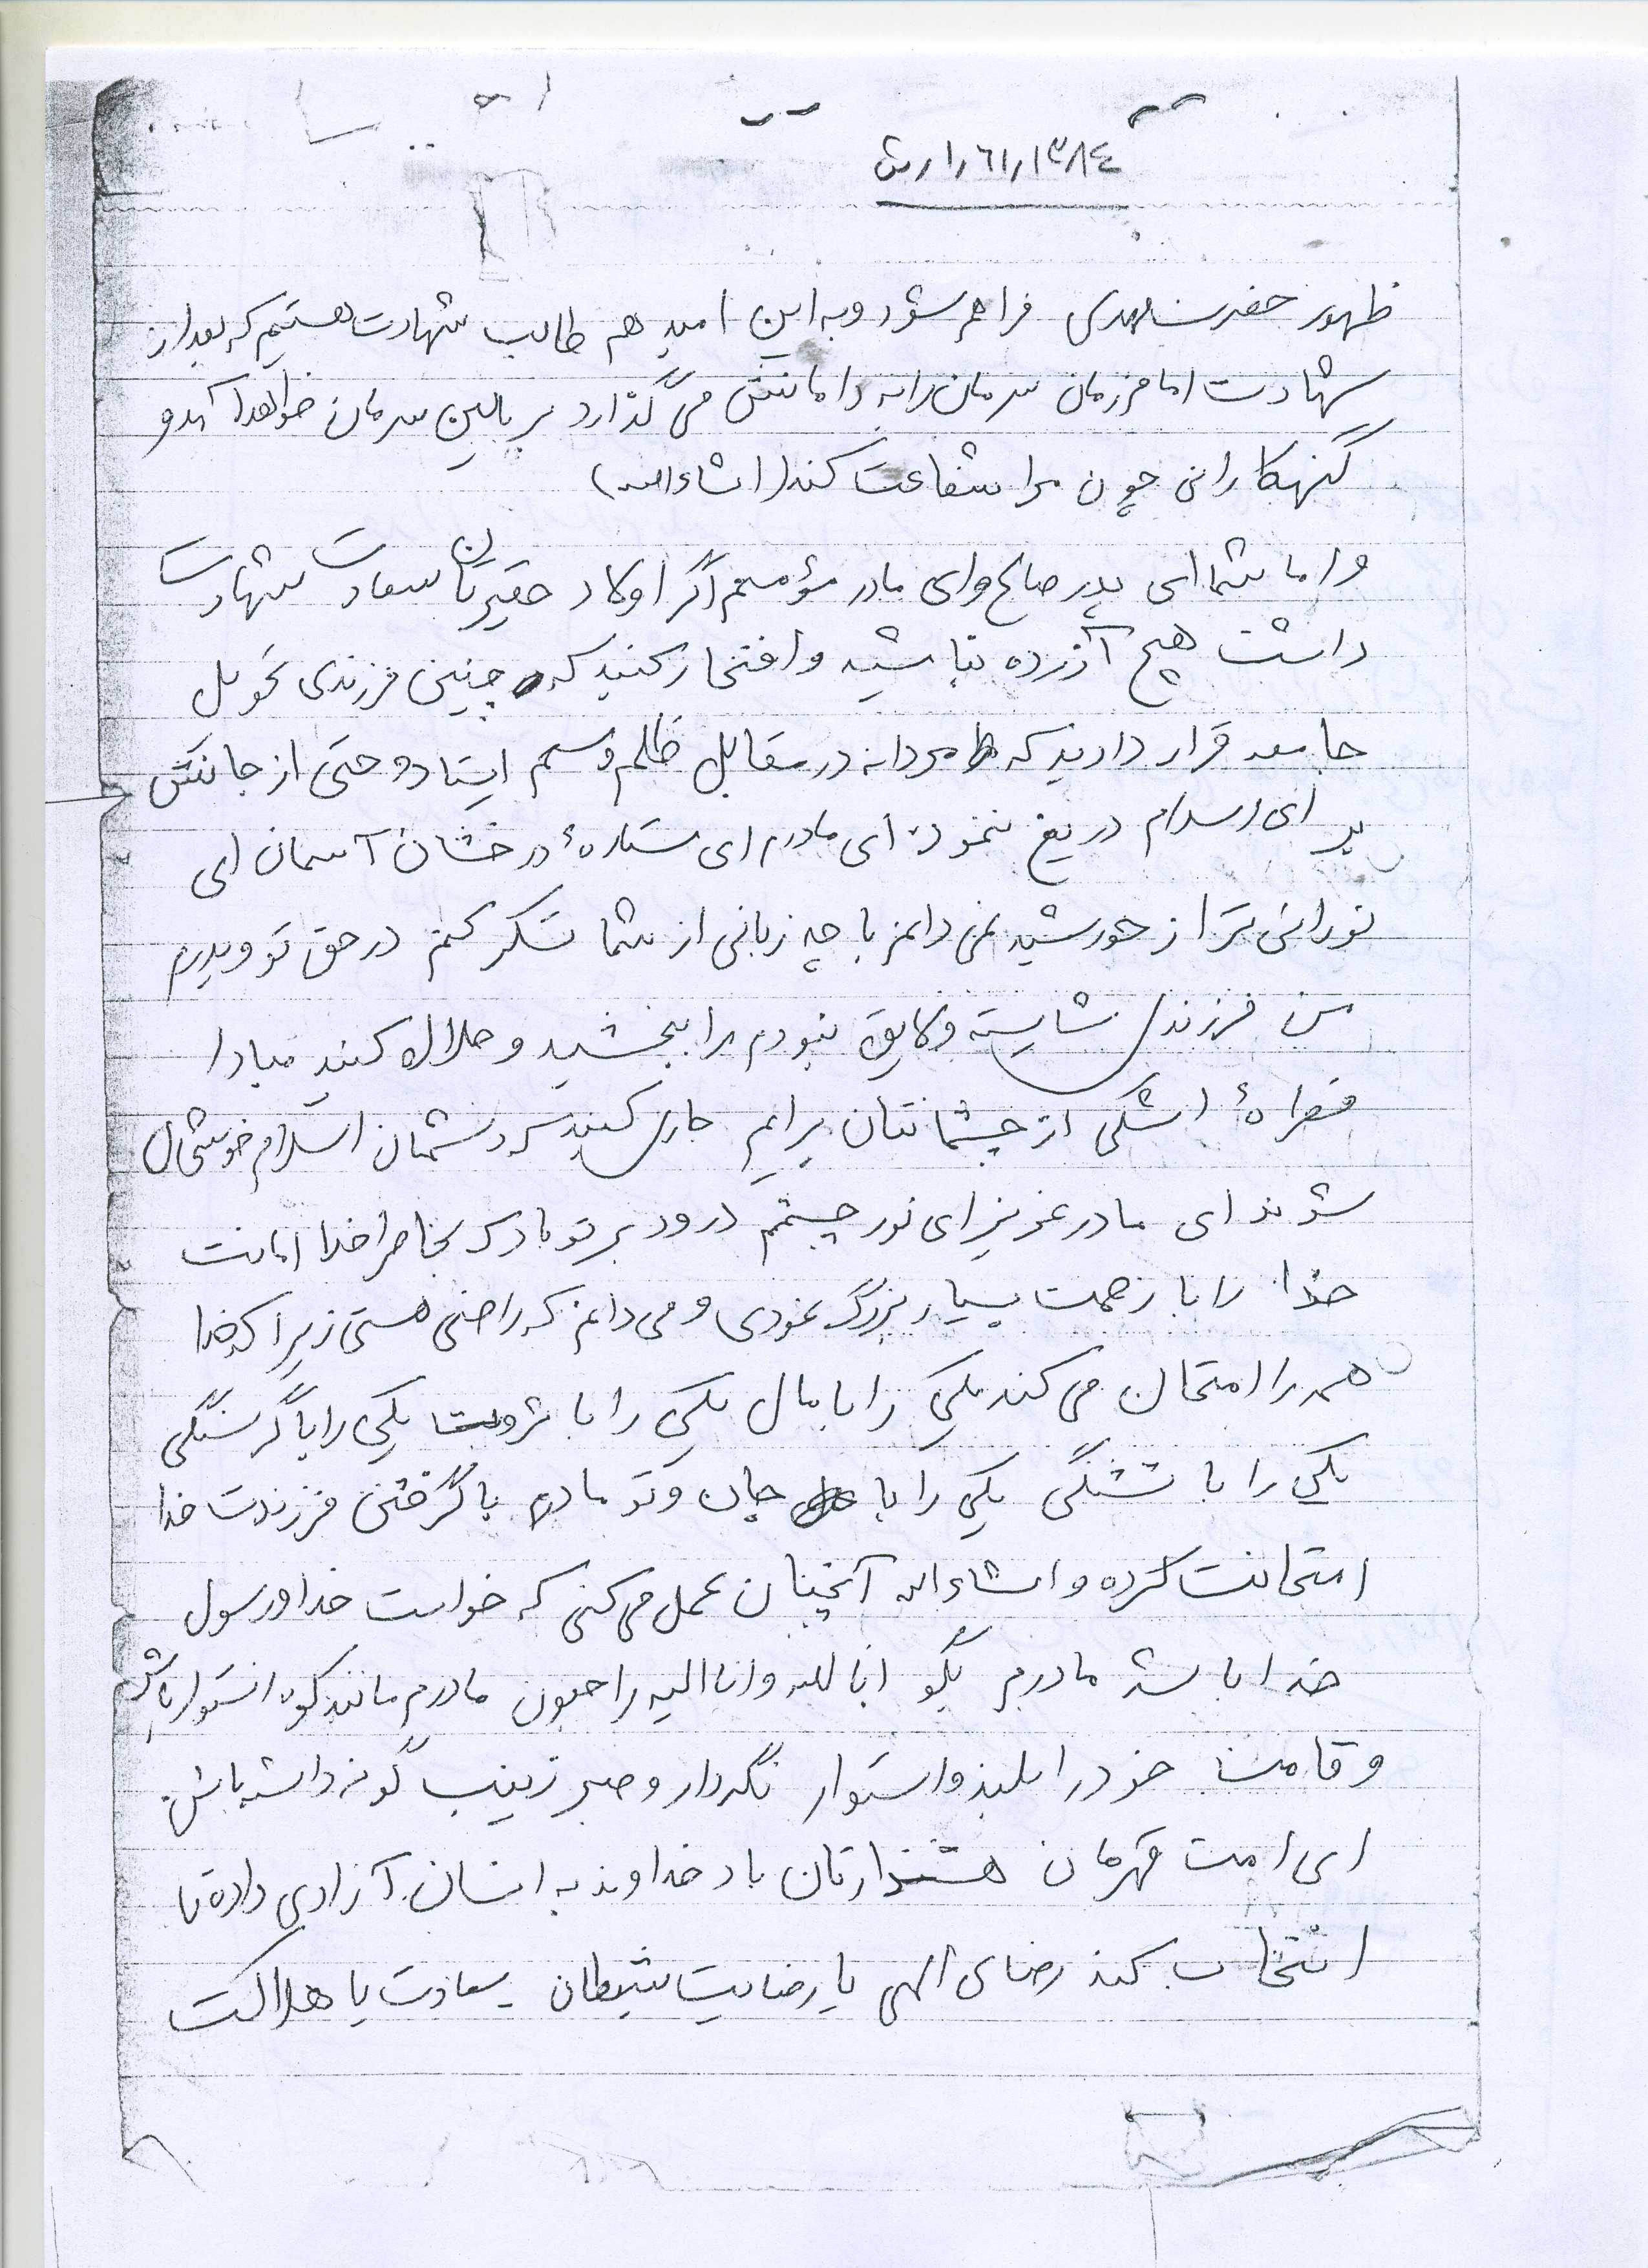 ۱۳۸۴ر۶۱ر۱ر ش
ظهور حضرت مهدی فراهم شود و به این امید هم طالب شهادت هستیم که بعد از
شهادت امام زمان سرمان را به دامانش می گذارد بر بالین سرمان خواهد آمد و
گنهکارانی چون مرا شفاعت کند (انشاءالله)
و اما شما ای پدر صالح و ای مادر مؤمنم اگر اولاد حقیرتان سعادت شهادت
داشت هیچ آزرده نباشید و افتخار کنید که چنین فرزندی تحویل
جامعه قرار دادید که مردانه در مقابل ظلم و ستم ایستاد و حتی از جانش
برای اسلام دریغ ننمود. ای مادرم ای ستارهٔ درخشان آسمان ای
نورانی تر از خورشید نمی دانم با چه زبانی از شما تشکر کنم در حق تو و پدرم
من فرزند شایسته و لایق نبودم مرا ببخشید و حلال کنید مبادا
قطرهٔ اشکی از چشمانتان برایم جاری کنید که دشمنان اسلام خوشحال
شوند ای مادر عزیز ای نور چشمم درود بر تو باد که بخاطر خدا امانت
خدا را با زحمت بسیار بزرگ نمودی و می دانم که راضی هستی زیرا که خدا
همه را امتحان می کند یکی را با مال یکی را با ثروت یکی را با گرسنگی
یکی را با تشنگی یکی را با جان و تو مادرم با گرفتن فرزندت خدا
امتحانت کرده و انشاءالله آنچنان عمل می کنی که خواست خدا و رسول
خدا باشد مادرم بگو انا لله و انا الیه راجعون مادرم مانند کوه استوار باش
و قامت خود را بلند و استوار نگهدار و صبر زینب گونه داشته باش.
ای امت قهرمان هشدارتان باد خداوند به انسان آزادی داده تا
انتخاب کند رضای الهی یا رضایت شیطان سعادت یا هلاکت